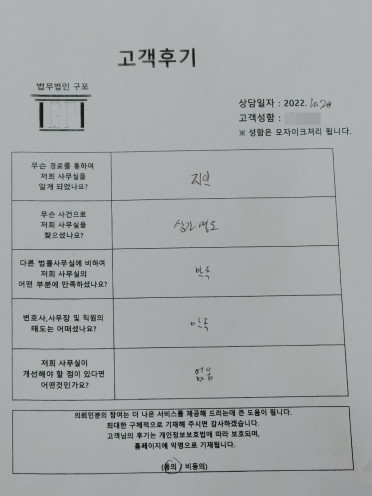 고객후기
법무법인 구포
상담일자 : 2022. 10. 20
고객성함 :
※ 성함은 모자이크처리 됩니다.
무슨 경로를 통하여
저희 사무실을
알게 되었나요?
지인
무슨 사건으로
저희 사무실을
찾으셨나요?
상가 명도
다른 법률사무실에 비하여
저희 사무실의
어떤 부분에 만족하셨나요?
만족
변호사,사무장 및 직원의
태도는 어떠셨나요?
만족
저희 사무실이
개선해야 할 점이 있다면
어떤것인가요?
없음
의뢰인분의 참여는 더 나은 서비스를 제공해 드리는데 큰 도움이 됩니다.
최대한 구체적으로 기재해 주시면 감사하겠습니다.
고객님의 후기는 개인정보보호법에 따라 보호되며,
홈페이지에 익명으로 기재됩니다.
(동의 / 비동의)